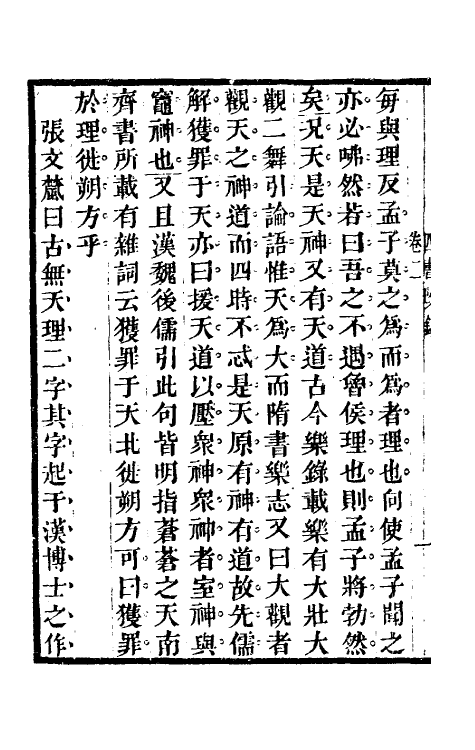 每與理反孟子莫之爲而爲者理也向使孟子聞之
亦必咈然若曰吾之不遇魯侯理也則孟子將勃然
矣况天是天神又有天道古今樂錄載樂有大壯大
觀二舞引論語惟天爲大而隋書樂志又曰大觀者
觀天之神道而四時不忒是天原有神有道故先儒
解獲罪于天亦曰援天道以壓衆神衆神者室神與
竈神也又且漢魏後儒引此句皆明指蒼蒼之天南
齊書所載有雜詞云獲罪于天北徙朔方可曰獲罪
於理徙朔方乎
張文虤曰古無天理二字其字起于漢博士之作
卷二